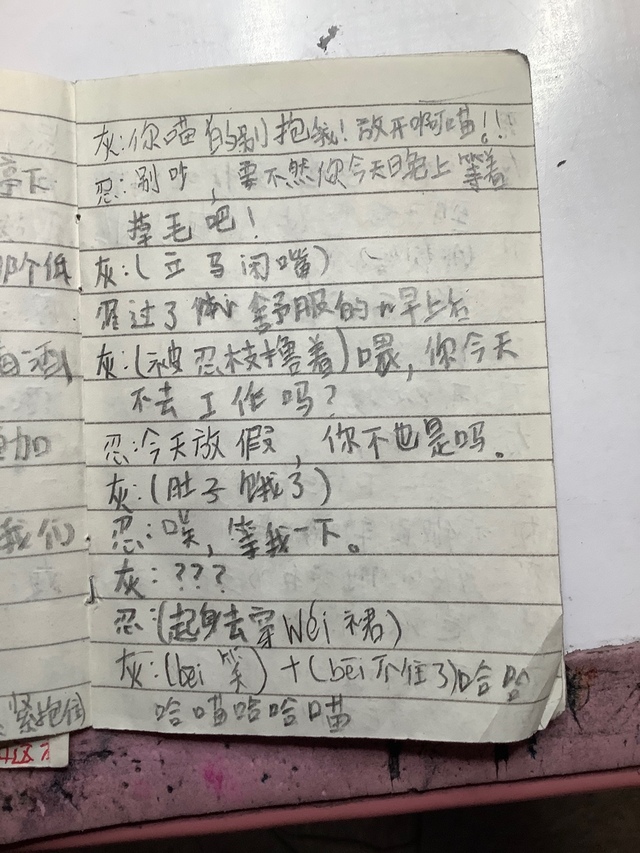 停下
那个低
酒
加
我们
紧抱住
灰:你喵的别抱我!放开啊喵!!
忍:别吵,要不然你今天晚上等着
掉毛吧!
灰:(立马闭嘴)
过了 舒服的 早上后
灰:(被忍枝撸着)喂,你今天
不去工作吗?
忍:今天放假,你不也是吗。
灰:(肚子饿了)
忍:噗,等我一下。
灰:???
忍:(起身去穿Wéi裙)
灰:(bei笑)+(bei不住了)哈哈
哈喵哈哈喵